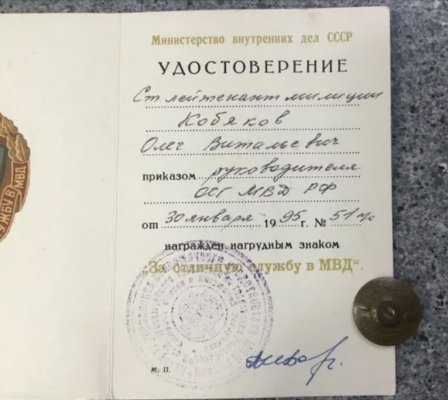 Министерство внутренних дел СССР
УДОСТОВЕРЕНИЕ
Ст лейтенант милиции
Кобяков
Олег Витальевич
приказом руководителя
ОСГ МВД РФ
от 30 января 1995 г. № 51
награжден нагрудным знаком
„За отличную службу в МВД“.
М. П.
СЛУЖБУ В МВД